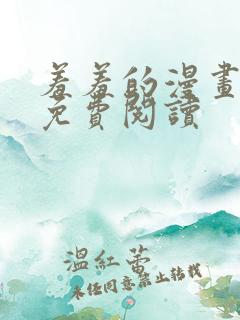 羞羞的漫畫
免費閱讀
溫紅蕾
未经同意禁止转载